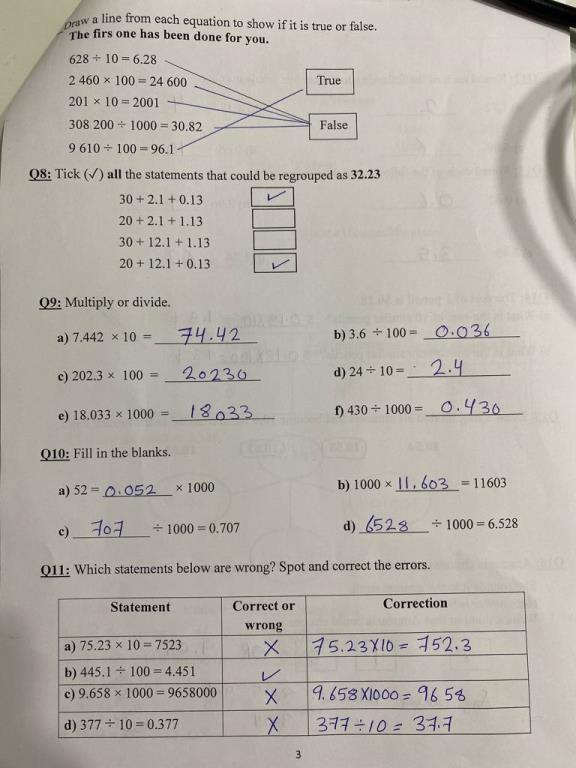 Draw a line from each equation to show if it is true or false.
The firs one has been done for you.
628 ÷ 10 = 6.28
2 460 × 100 = 24 600
True
201 × 10 = 2001
308 200 ÷ 1000 = 30.82
False
9 610 ÷ 100 = 96.1
Q8: Tick (√) all the statements that could be regrouped as 32.23
30 + 2.1 + 0.13 ✓
20 + 2.1 + 1.13
30 + 12.1 + 1.13
20 + 12.1 + 0.13 ✓
Q9: Multiply or divide.
a) 7.442 × 10 = 74.42 b) 3.6 ÷ 100 = 0.036
c) 202.3 × 100 = 20230 d) 24 ÷ 10 = 2.4
e) 18.033 × 1000 = 18033 f) 430 ÷ 1000 = 0.430
Q10: Fill in the blanks.
a) 52 = 0.052 × 1000 b) 1000 × 11.603 = 11603
c) 707 ÷ 1000 = 0.707 d) 6528 ÷ 1000 = 6.528
Q11: Which statements below are wrong? Spot and correct the errors.
Statement Correct or wrong Correction
a) 75.23 × 10 = 7523 X 75.23X10 = 752.3
b) 445.1 ÷ 100 = 4.451 ✓
c) 9.658 × 1000 = 9658000 X 9.658X1000 = 9658
d) 377 ÷ 10 = 0.377 X 377÷10 = 37.7
3